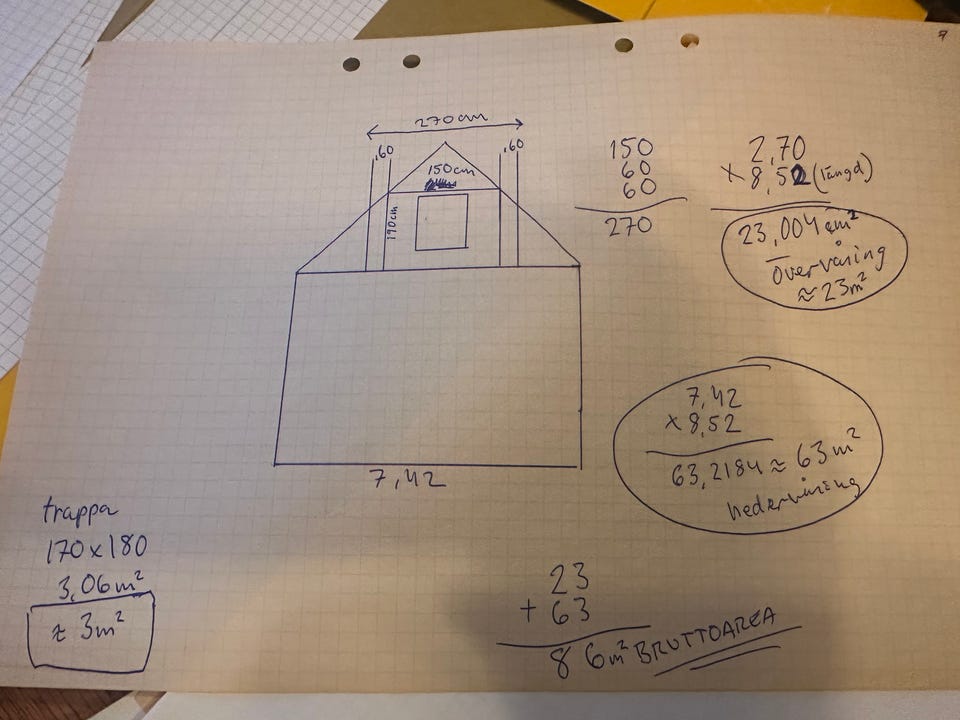 270cm
,60
,60
150cm
190cm
7,42
150
60
60
270
2,70
x 8,52 (längd)
23,004 m²
övervåning
≈ 23m²
7,42
x 8,52
63,2184 ≈ 63 m²
nedervåning
trappa
170 x 180
3,06 m²
≈ 3m²
23
+ 63
86m² BRUTTOAREA